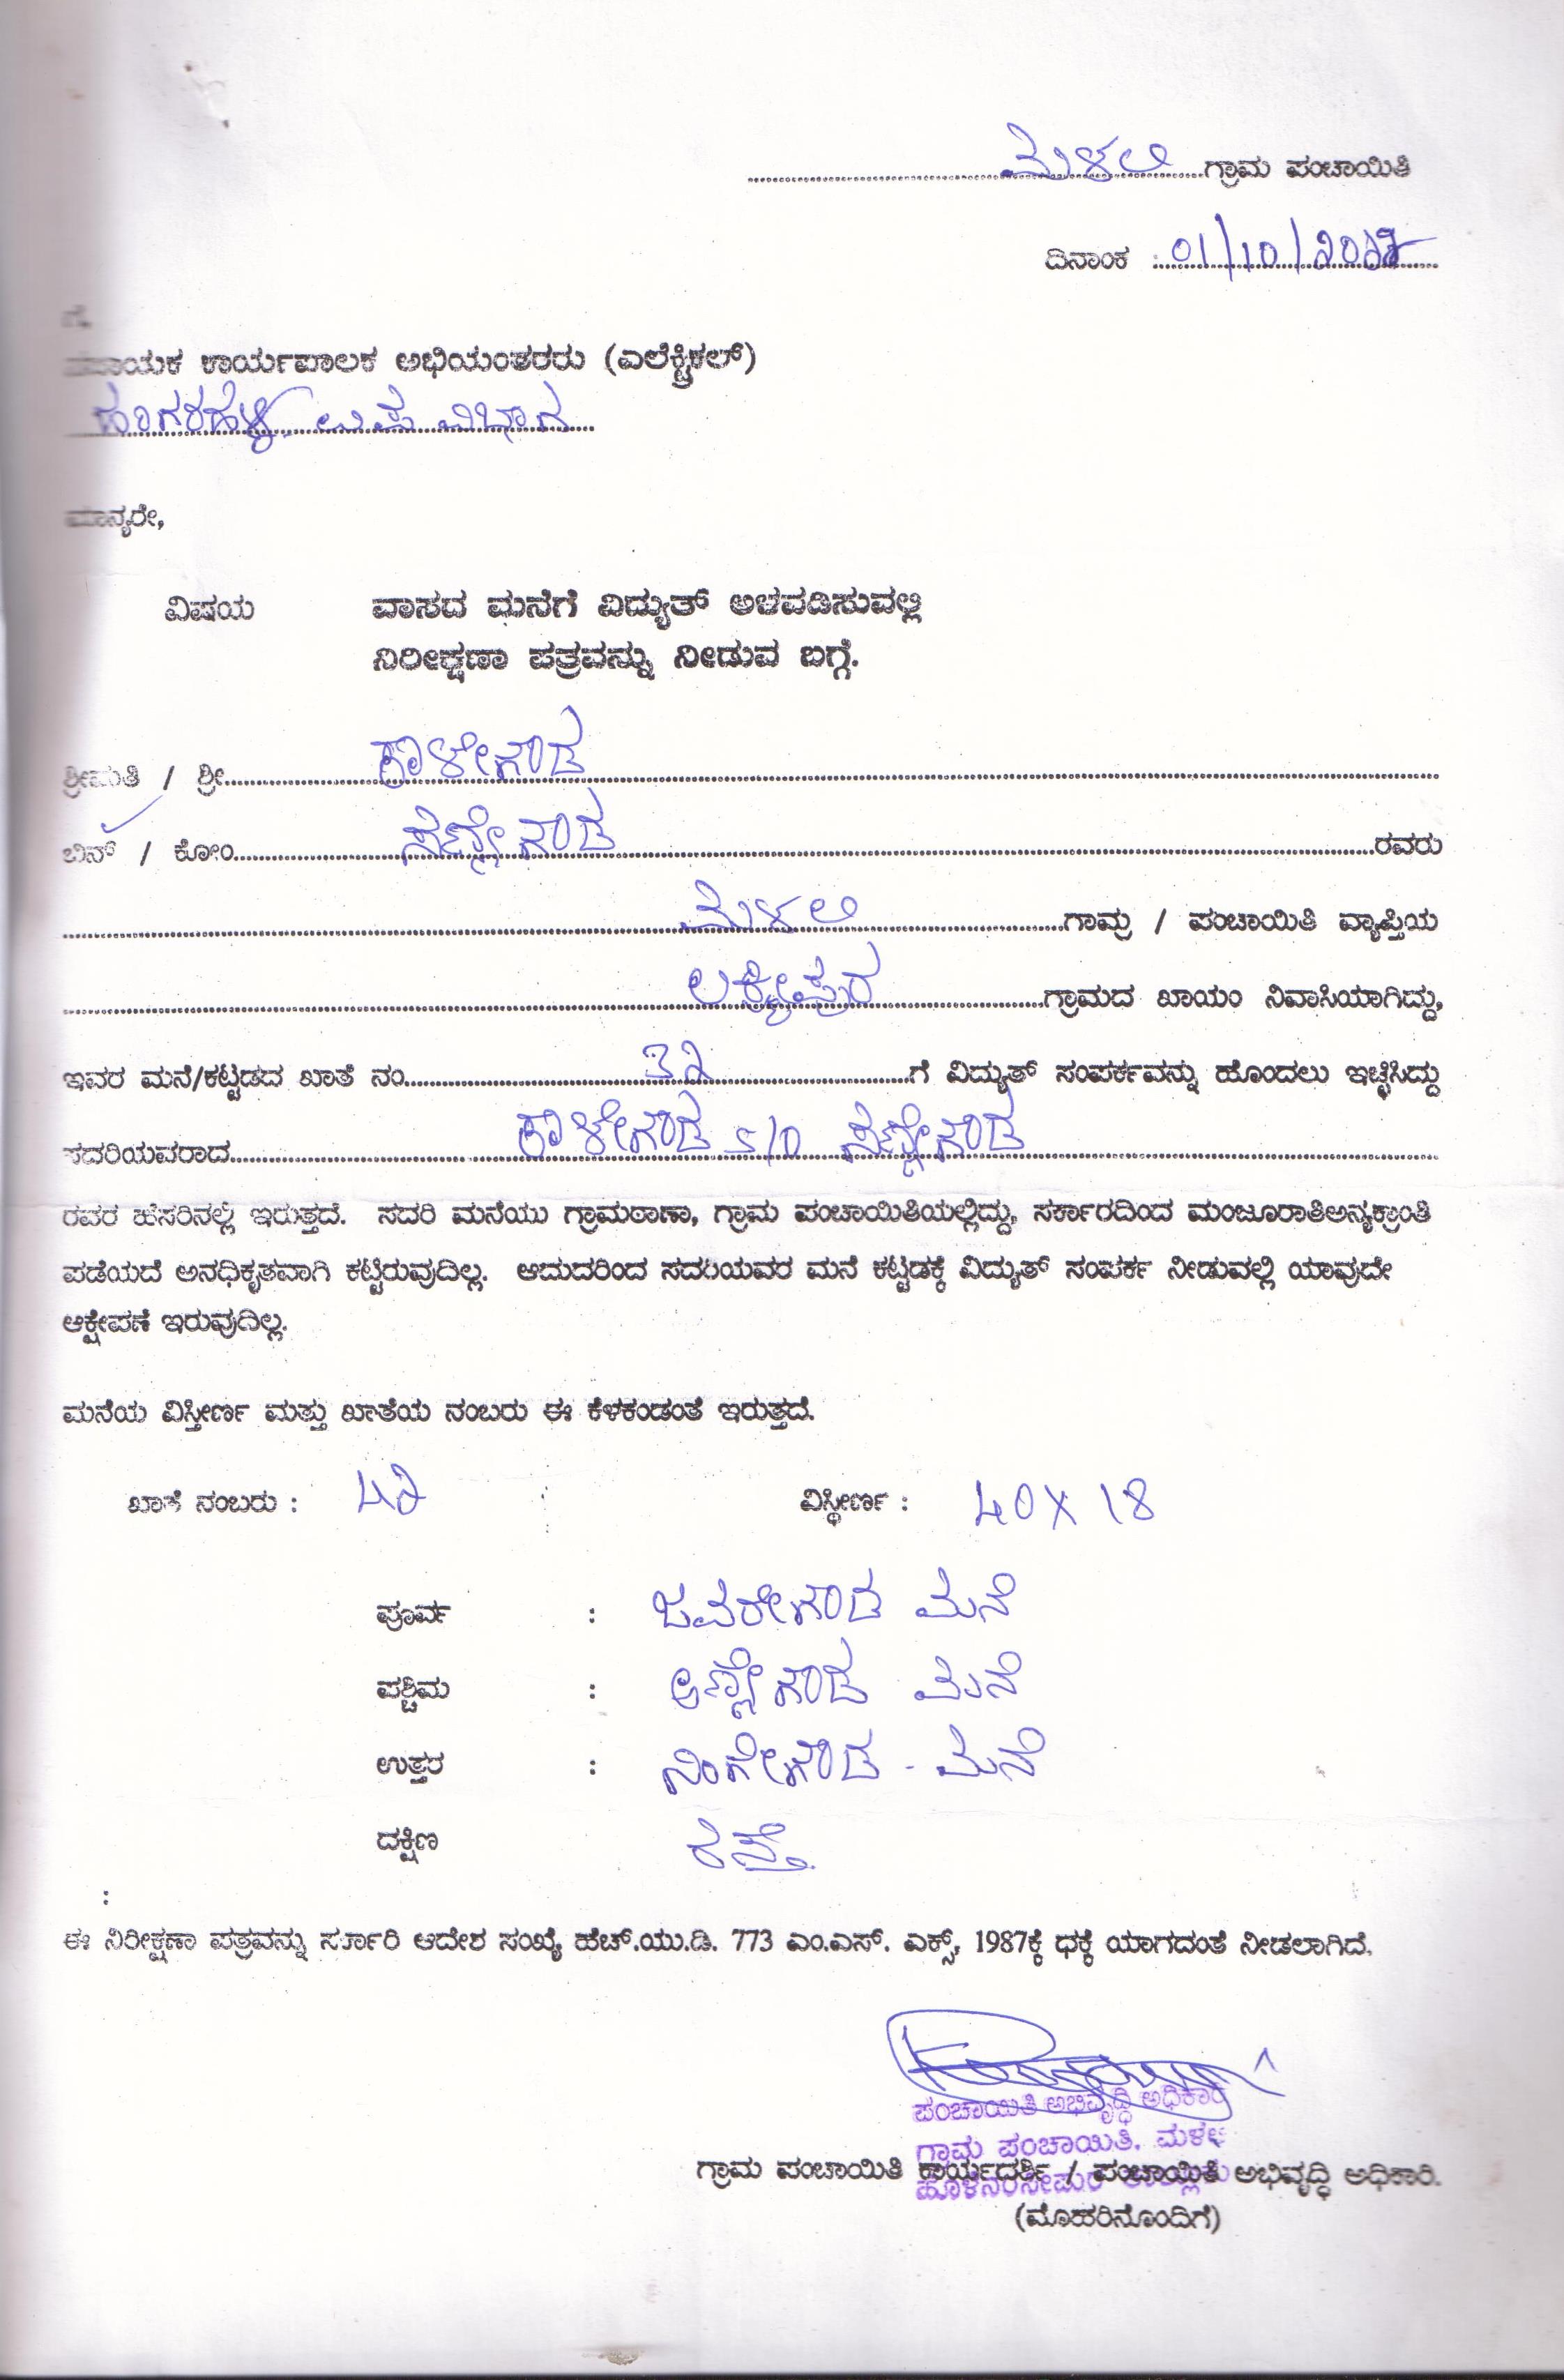 ಮಳಲಿ ಗ್ರಾಮ ಪಂಚಾಯಿತಿ
ದಿನಾಂಕ : 01/10/2017
ಗೆ,
ಸಹಾಯಕ ಕಾರ್ಯಪಾಲಕ ಅಭಿಯಂತರರು (ಎಲೆಕ್ಟ್ರಿಕಲ್)
ಉಪ ವಿಭಾಗ
ಮಾನ್ಯರೇ,
ವಿಷಯ ವಾಸದ ಮನೆಗೆ ವಿದ್ಯುತ್ ಅಳವಡಿಸುವಲ್ಲಿ
ನಿರೀಕ್ಷಣಾ ಪತ್ರವನ್ನು ನೀಡುವ ಬಗ್ಗೆ.
ಶ್ರೀಮತಿ / ಶ್ರೀ ಕಾಳೇಗೌಡ
ಬಿನ್ / ಕೋಂ ಸಣ್ಣೇಗೌಡ ರವರು
ಮಳಲಿ ಗಾಮ್ರ / ಪಂಚಾಯಿತಿ ವ್ಯಾಪ್ತಿಯ
ಲಕ್ಷ್ಮೀಪುರ ಗ್ರಾಮದ ಖಾಯಂ ನಿವಾಸಿಯಾಗಿದ್ದು,
ಇವರ ಮನೆ/ಕಟ್ಟಡದ ಖಾತೆ ನಂ 32 ಗೆ ವಿದ್ಯುತ್ ಸಂಪರ್ಕವನ್ನು ಹೊಂದಲು ಇಚ್ಛಿಸಿದ್ದು
ಸದರಿಯವರಾದ ಕಾಳೇಗೌಡ S/O ಸಣ್ಣೇಗೌಡ
ರವರ ಹೆಸರಿನಲ್ಲಿ ಇರುತ್ತದೆ. ಸದರಿ ಮನೆಯು ಗ್ರಾಮಠಾಣಾ, ಗ್ರಾಮ ಪಂಚಾಯಿತಿಯಲ್ಲಿದ್ದು, ಸರ್ಕಾರದಿಂದ ಮಂಜೂರಾತಿಅನ್ಯಕ್ರಾಂತಿ
ಪಡೆಯದೆ ಅನಧಿಕೃತವಾಗಿ ಕಟ್ಟಿರುವುದಿಲ್ಲ. ಆದುದರಿಂದ ಸದರಿಯವರ ಮನೆ ಕಟ್ಟಡಕ್ಕೆ ವಿದ್ಯುತ್ ಸಂಪರ್ಕ ನೀಡುವಲ್ಲಿ ಯಾವುದೇ
ಆಕ್ಷೇಪಣೆ ಇರುವುದಿಲ್ಲ.
ಮನೆಯ ವಿಸ್ತೀರ್ಣ ಮತ್ತು ಖಾತೆಯ ನಂಬರು ಈ ಕೆಳಕಂಡಂತೆ ಇರುತ್ತದೆ.
ಖಾತೆ ನಂಬರು : 42 ವಿಸ್ಥೀರ್ಣ : 40 X 18
ಪೂರ್ವ : ಜವರೇಗೌಡ ಮನೆ
ಪಶ್ಚಿಮ : ಅಣ್ಣೇಗೌಡ ಮನೆ
ಉತ್ತರ : ನಿಂಗೇಗೌಡ - ಮನೆ
ದಕ್ಷಿಣ ರಸ್ತೆ.
:
ಈ ನಿರೀಕ್ಷಣಾ ಪತ್ರವನ್ನು ಸರ್ಕಾರಿ ಆದೇಶ ಸಂಖ್ಯೆ ಹೆಚ್.ಯು.ಡಿ. 773 ಎಂ.ಎಸ್. ಎಕ್ಸ್, 1987ಕ್ಕೆ ಧಕ್ಕೆ ಯಾಗದಂತೆ ನೀಡಲಾಗಿದೆ.
ಪಂಚಾಯಿತಿ ಅಭಿವೃದ್ಧಿ ಅಧಿಕಾರಿ
ಗ್ರಾಮ ಪಂಚಾಯಿತಿ, ಮಳಲಿ
ಹೊಳೆನರಸೀಪುರ ತಾಲ್ಲೂಕು
ಗ್ರಾಮ ಪಂಚಾಯಿತಿ ಕಾರ್ಯದರ್ಶಿ / ಪಂಚಾಯಿತಿ ಅಭಿವೃದ್ಧಿ ಅಧಿಕಾರಿ.
(ಮೊಹರಿನೊಂದಿಗೆ)